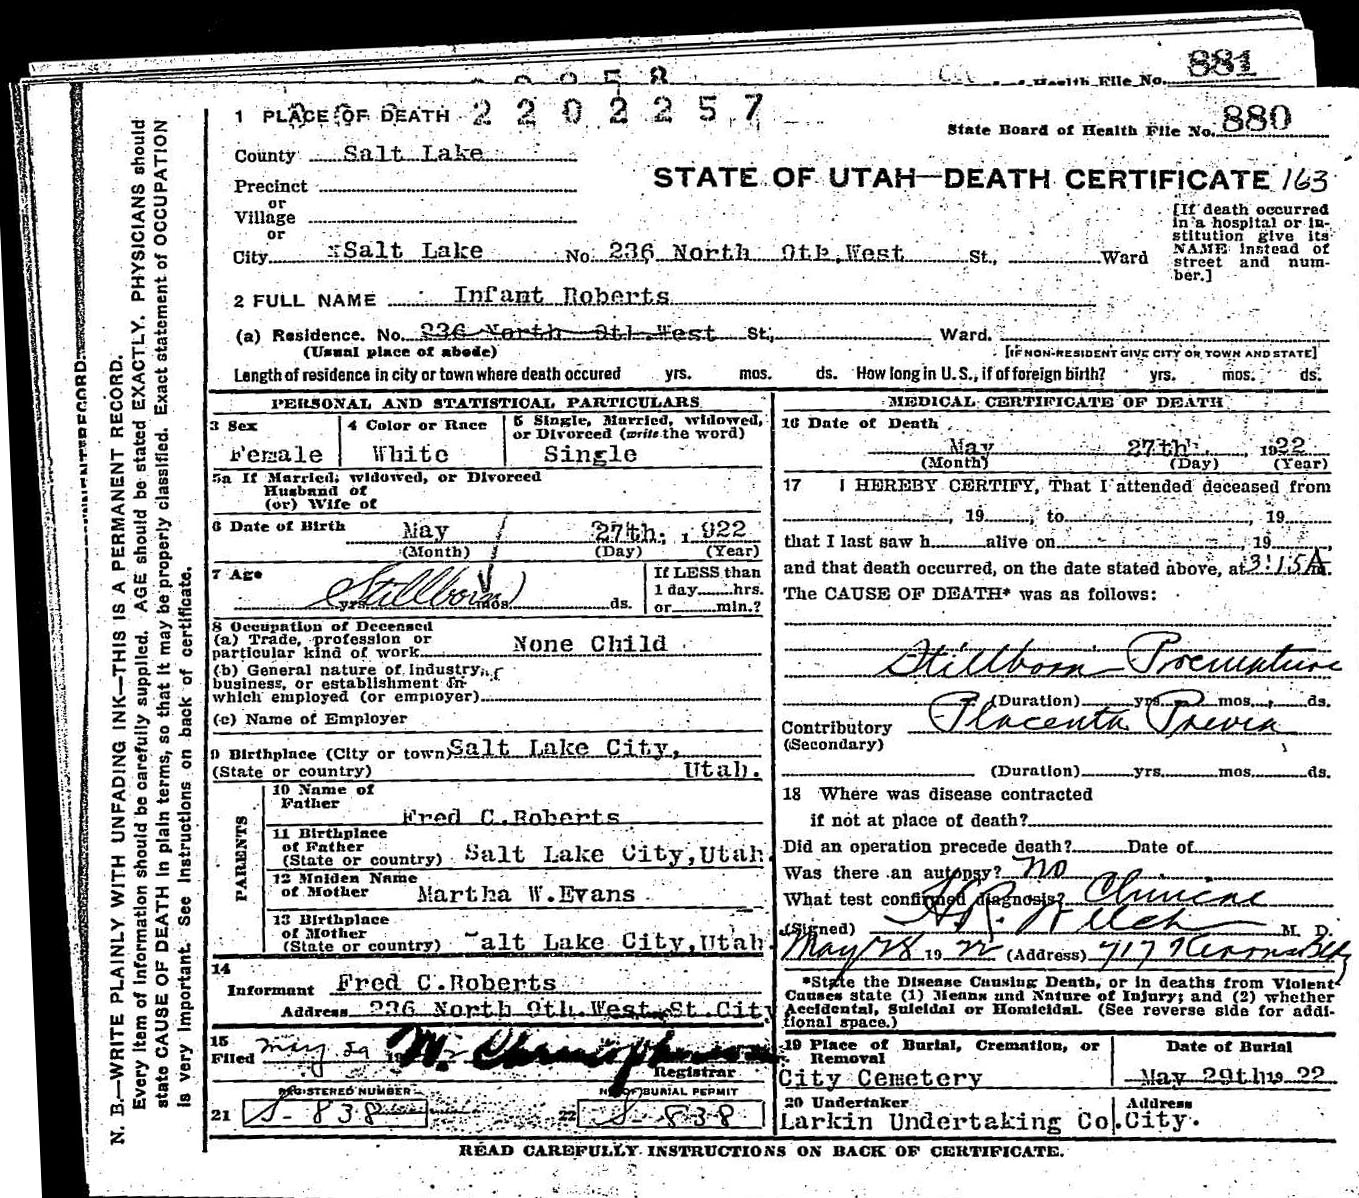 881
of Health File No.
1 PLACE OF DEATH 2202257
State Board of Health File No. 880
County Salt Lake
STATE OF UTAH—DEATH CERTIFICATE 163
Precinct
or
Village
or
City Salt Lake No. 236 North 9th West St., Ward
[If death occurred
in a hospital or in-
stitution give its
NAME instead of
street and num-
ber.]
2 FULL NAME Infant Roberts
(a) Residence. No. 236 North 9th West St., Ward.
(Usual place of abode) [IF NON-RESIDENT GIVE CITY OR TOWN AND STATE]
Length of residence in city or town where death occured yrs. mos. ds. How long in U. S., if of foreign birth? yrs. mos. ds.
PERSONAL AND STATISTICAL PARTICULARS
3 Sex
Female
4 Color or Race
White
5 Single, Married, widowed,
or Divorced (write the word)
Single
5a If Married, widowed, or Divorced
Husband of
(or) Wife of
6 Date of Birth May 27th. 1922
(Month) (Day) (Year)
7 Age Stillborn
yrs. mos. ds.
If LESS than
1 day hrs.
or min.?
8 Occupation of Deceased
(a) Trade, profession or
particular kind of work None Child
(b) General nature of industry,
business, or establishment in
which employed (or employer)
(c) Name of Employer
9 Birthplace (City or town) Salt Lake City,
(State or country) Utah.
PARENTS
10 Name of
Father Fred C.Roberts
11 Birthplace
of Father
(State or country) Salt Lake City,Utah.
12 Maiden Name
of Mother Martha W.Evans
13 Birthplace
of Mother
(State or country) alt Lake City,Utah
14
Informant Fred C.Roberts
Address 236 North 9th.West.St.City
15
Filed May 29 19
Registrar
REGISTERED NUMBER
21 S-838
NO. OF BURIAL PERMIT
22 S-838
MEDICAL CERTIFICATE OF DEATH
16 Date of Death
May 27th. 1922
(Month) (Day) (Year)
17 I HEREBY CERTIFY, That I attended deceased from
, 19 , to , 19
that I last saw h alive on , 19 ,
and that death occurred, on the date stated above, at 3:15 A m.
The CAUSE OF DEATH* was as follows:
Stillborn Premature
(Duration) yrs. mos. ds.
Contributory Placenta Previa
(Secondary)
(Duration) yrs. mos. ds.
18 Where was disease contracted
if not at place of death?
Did an operation precede death? Date of
Was there an autopsy? No
What test confirmed diagnosis? Clinical
(Signed) H.R. Welch M. D.
May 28 19 22 (Address) 717 Kearns Bldg
*State the Disease Causing Death, or in deaths from Violent
Causes state (1) Means and Nature of Injury; and (2) whether
Accidental, Suicidal or Homicidal. (See reverse side for addi-
tional space.)
19 Place of Burial, Cremation, or
Removal
City Cemetery
Date of Burial
May 29th 19 22
20 Undertaker
Larkin Undertaking Co.
Address
City.
READ CAREFULLY INSTRUCTIONS ON BACK OF CERTIFICATE.
N. B.—WRITE PLAINLY WITH UNFADING INK—THIS IS A PERMANENT RECORD.
Every item of information should be carefully supplied. AGE should be stated EXACTLY. PHYSICIANS should
state CAUSE OF DEATH in plain terms, so that it may be properly classified. Exact statement of OCCUPATION
is very important. See Instructions on back of certificate.